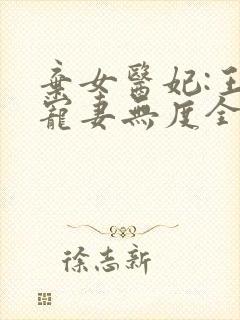 棄女醫妃:王
寵妻無度全
徐志新